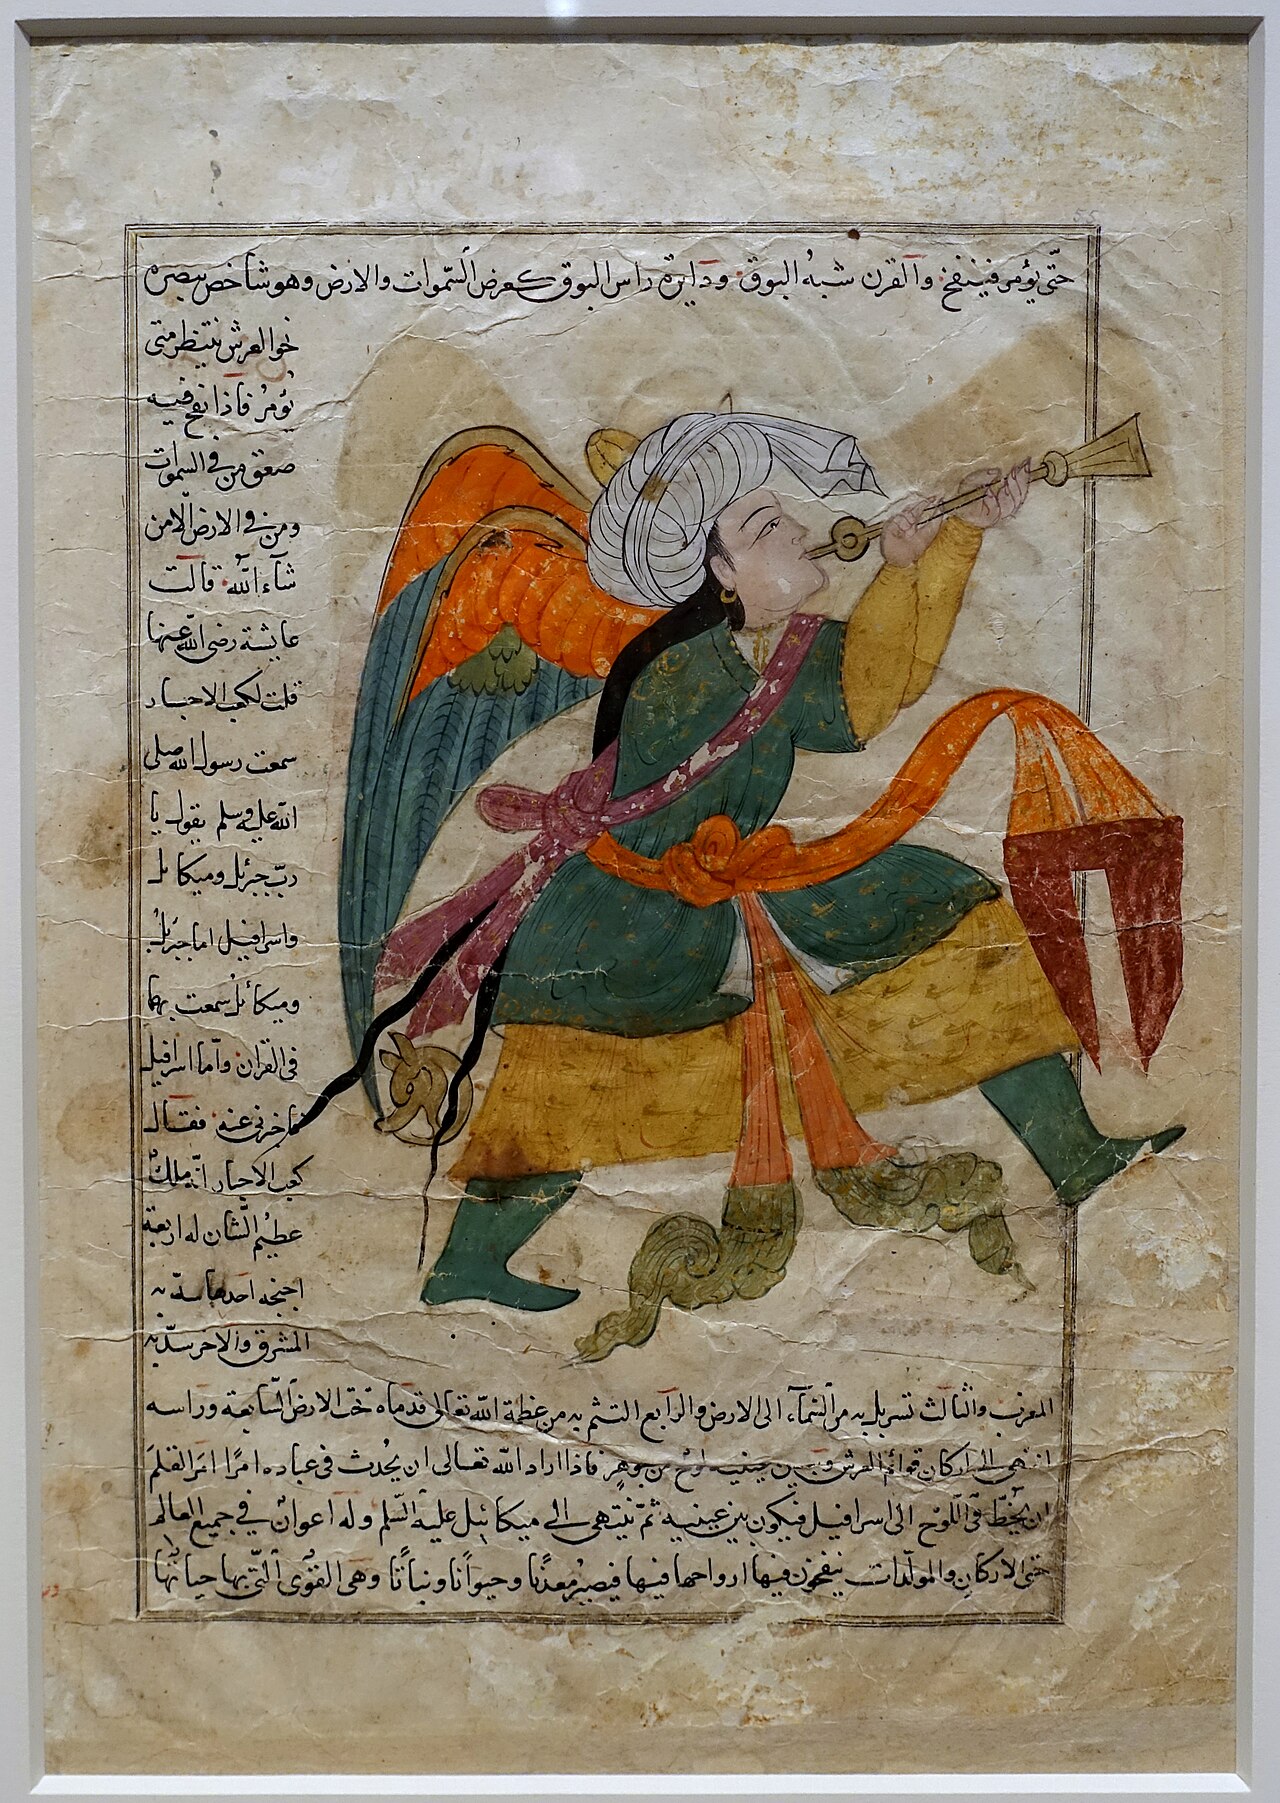 حتّى يؤمر فينفخ والقرن شبه البوق ودايرة راس البوق كعرض السّموات والارض وهو شاخص ببصره
نحو العرش ينتظر متى
يؤمر فاذا نفخ فيه
صعق من في السموات
ومن في الارض الّا من
شآء الله قالت
عايشة رضى الله عنها
قلت لكعب الاحبار
سمعت رسول الله صلى
الله عليه وسلم يقول يا
ربّ جبرئيل وميكائل
واسرافيل اما جبرئيل
وميكائيل سمعت بهما
فى القران وأما اسرافيل
فاخبرنى عنه فقال
كعب الاحبار انّه ملك
عظيم الشّان له اربعة
اجنحة احدها سدّ به
المشرق والاخر سدّ به
المغرب والثالث تسربل به من السّمآء الى الارض والرابع التثم به من عظمة الله تعالى قدماه تحت الارض السّابعة وراسه
انتهى الى اركان قوائم العرش وبين عينيه لوح من جوهر فاذا اراد الله تعالى ان يحدث فى عباده امرًا امر القلم
ان يخطّ فى اللّوح الى اسرافيل فيكون بين عينيه ثمّ ينتهى الى ميكائيل عليه السّلم وله اعوان في جميع العالم
حتى الاركان والمولّدات ينفخون فيها ارواحها فيها فيصير معدنًا وحيوانًا ونباتًا وهى القوى الّتى بها حياتها